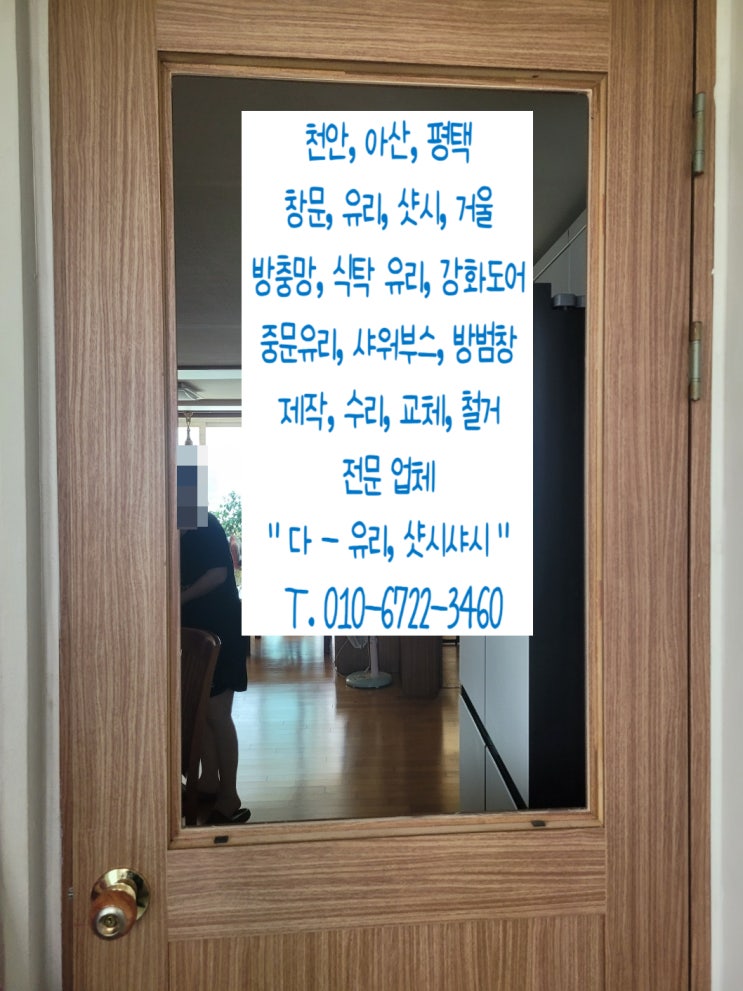 천안, 아산, 평택
창문, 유리, 샷시, 거울
방충망, 식탁 유리, 강화도어
중문유리, 샤워부스, 방범창
제작, 수리, 교체, 철거
전문 업체
" 다 - 유리, 샷시샤시 "
T. 010-6722-3460